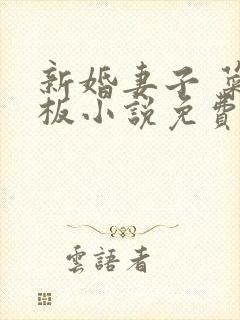 新婚妻子
板小說免費
雲語者